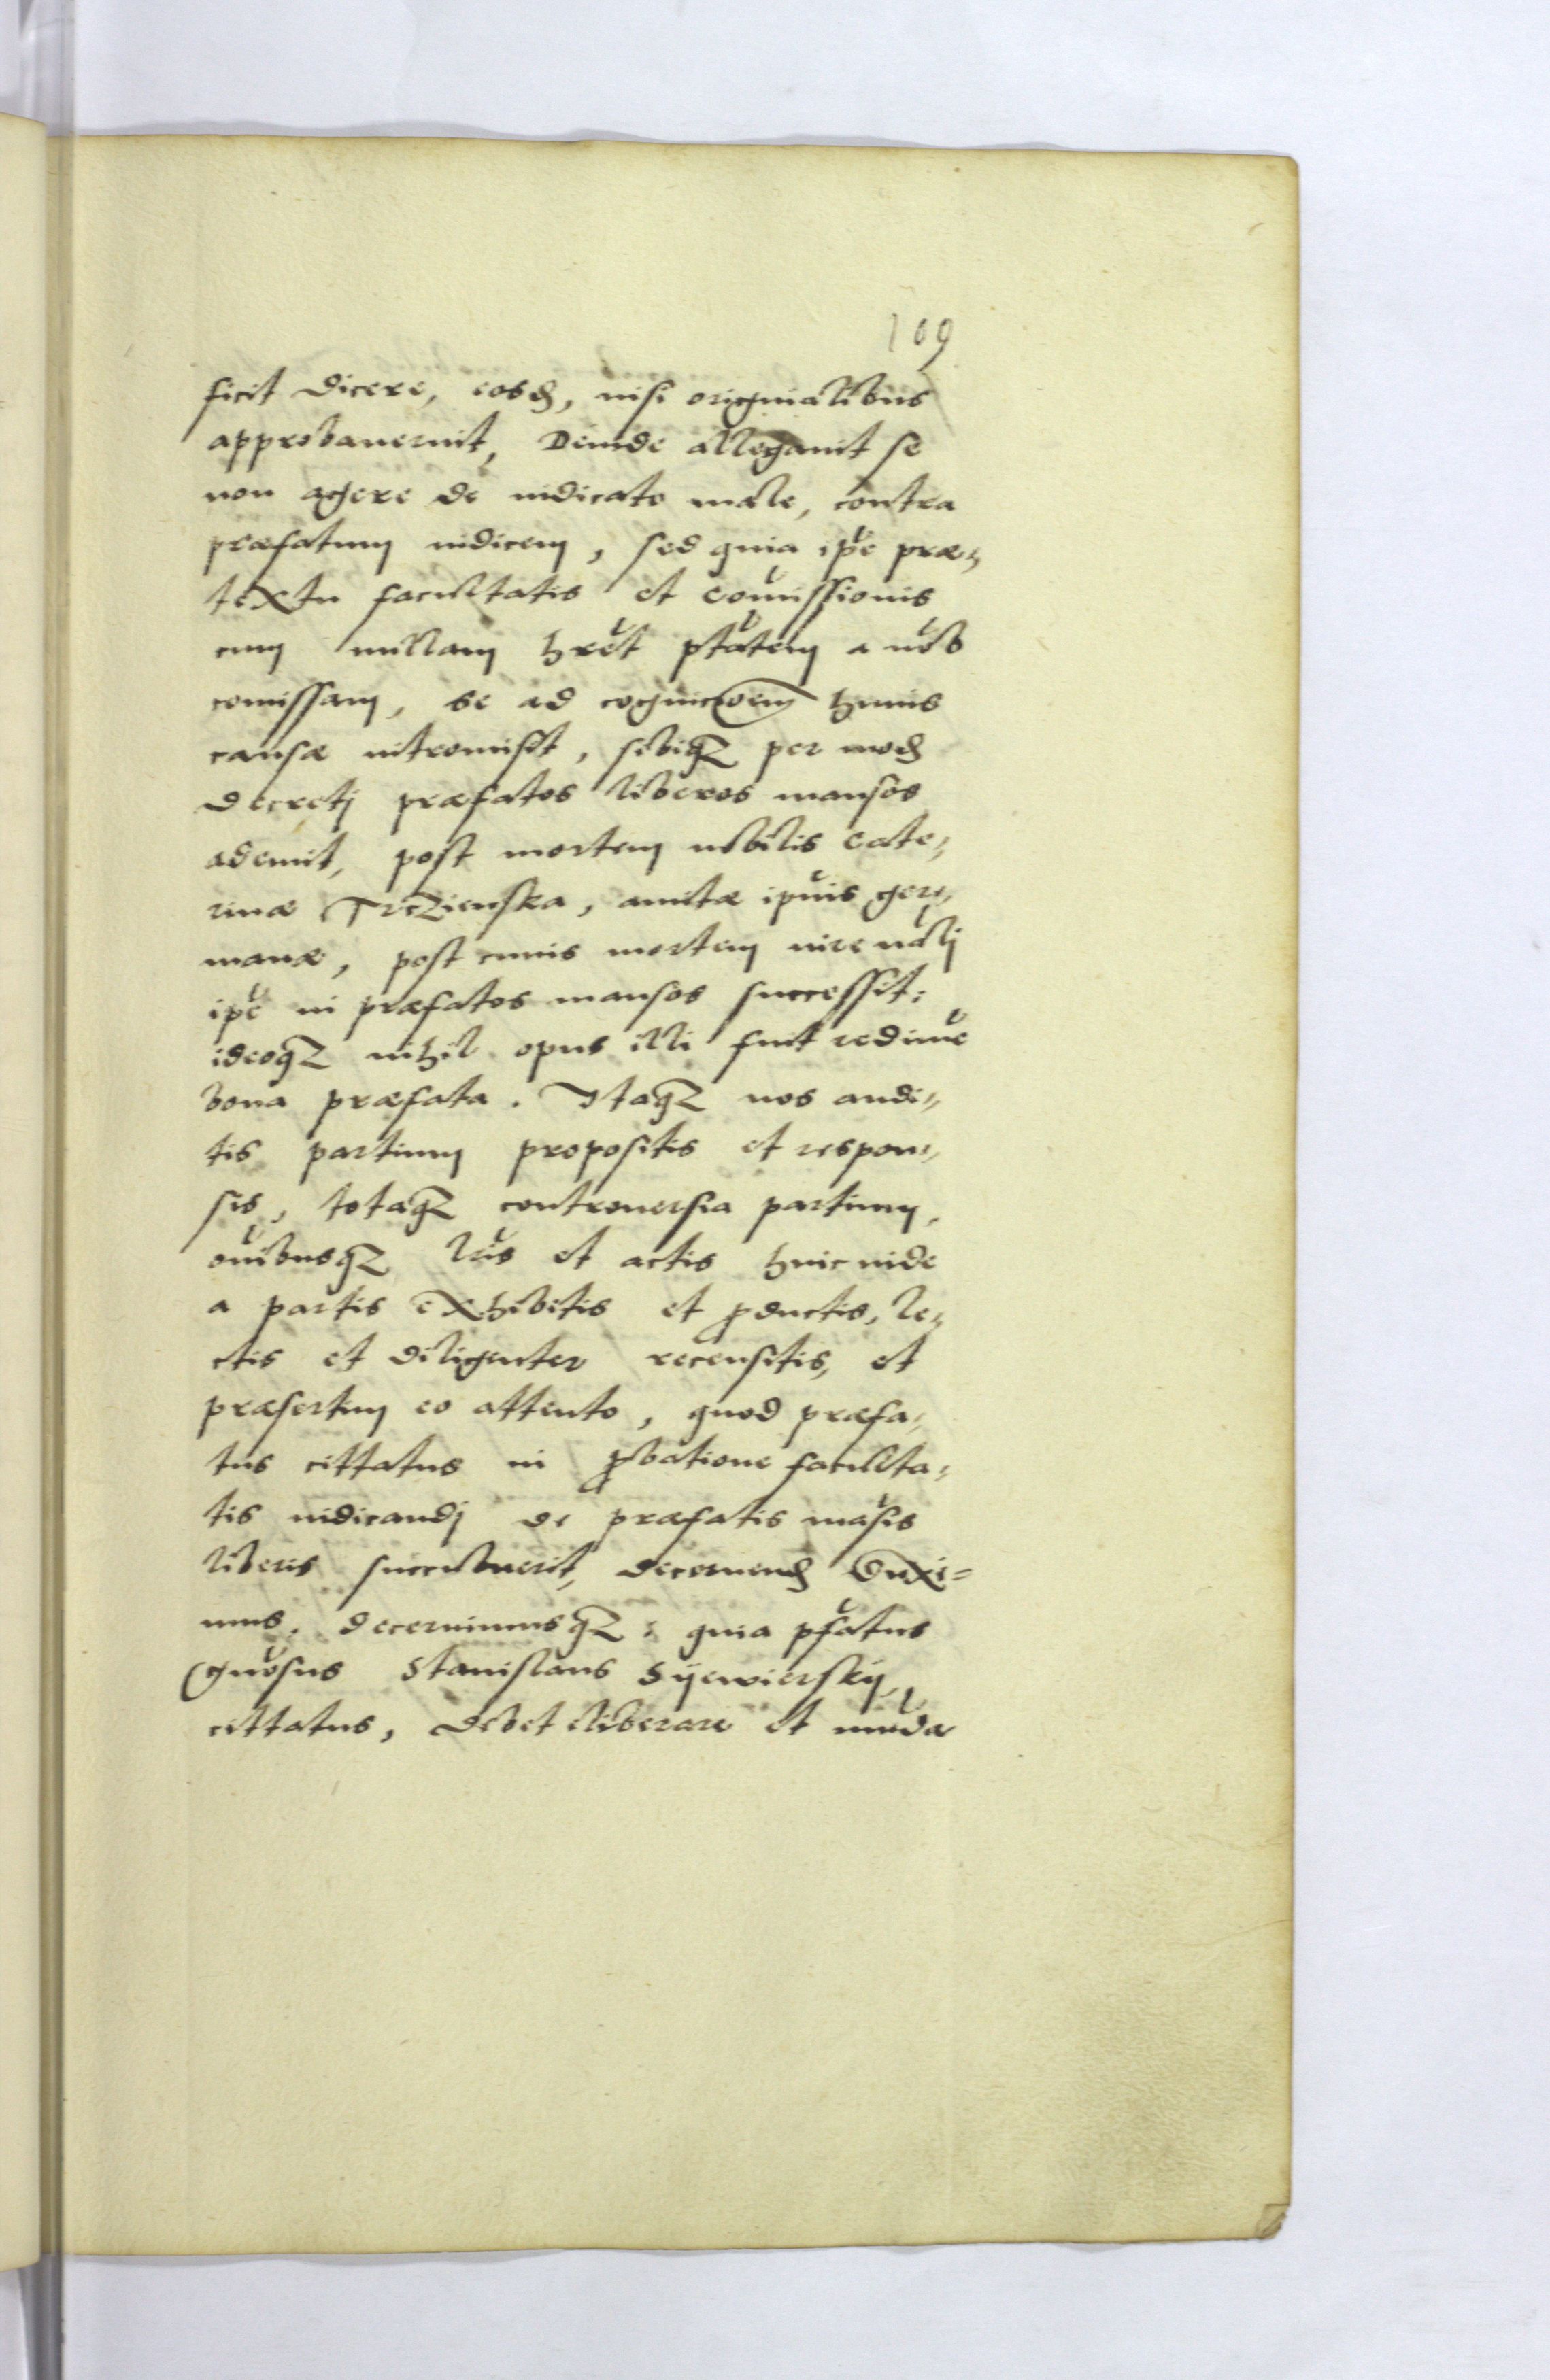 109
ficit dicere, eosd, nisi originalibus
approbaverit, Deinde allegavit se
non agere de iudicato male, contra
præfatum iudicem, sed quia ipe præ„
textu facultatis et comissionis
cum nullam hret ptatem a nob
comissam, se ad cognicioem huius
causæ intromisit, sibiqz per mod
decretj præfatos liberos mansos
ademit, post mortem nobilis Cate„
rinæ Trczienska, amitæ ipius ger„
manæ, post cuius mortem iure nalj
ipe in præfatos mansos successit:
ideoqz nihil opus illi fuit redime
bona præfata. Itaqz nos audi„
tis partium propositis et respon„
sis, totaqz controversia partium,
oibusqz lris et actis hinc inde
a partis exhibitis et productis, le„
ctis et diligenter recensitis, et
præsertim eo attento, quod præfa„
tus cittatus in probatione faculta„
tis iudicandj de præfatis masis
liberis succubuerit, decernend Duxi=
mus. decernimusqz: quia pfatus
Gnosus Stanislaus Syewierskÿ,
cittatus, debet eliberare et munda